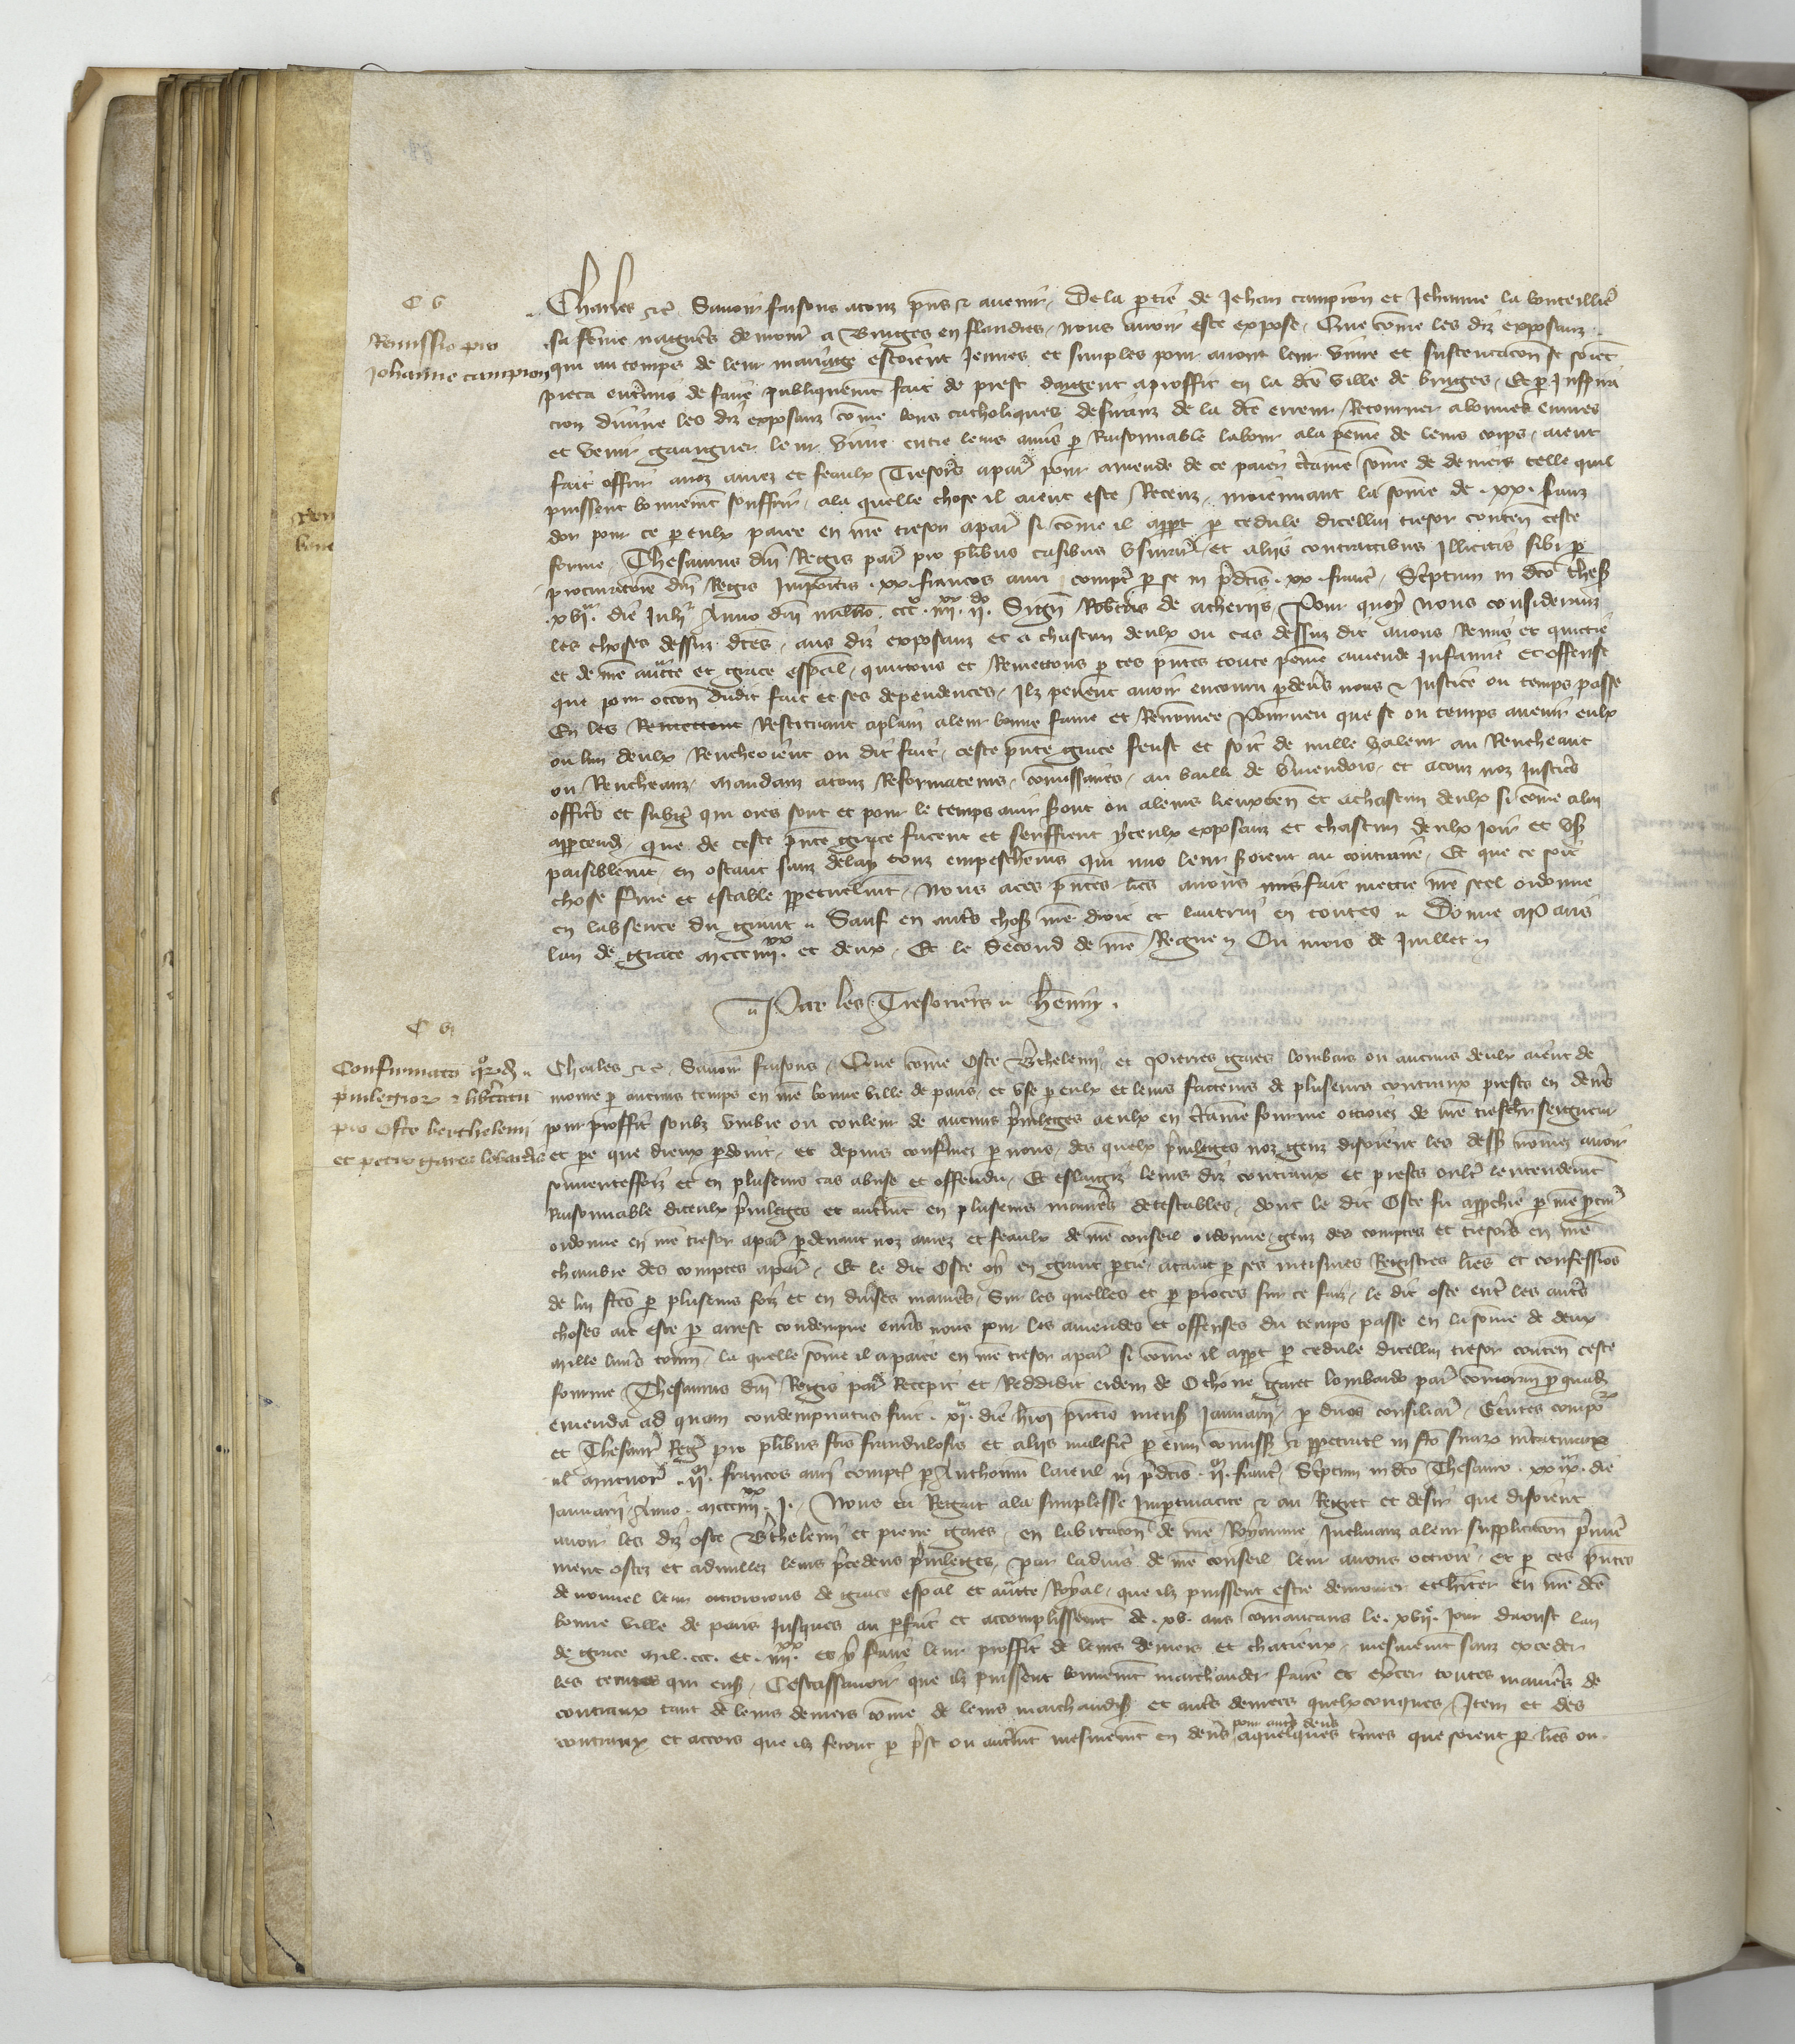 C V
Remissio pro
Johanne campion
Charles etc. Savoir faisons a touz pns et avenir De la ptie de Jehan campion et Jehanne la bouteillie
sa feme nagues demour a Bruges en flandres nous avoir este expose Que come les diz exposanz
qui au temps de leur mariage estoient Jeunes et simples pour avoir leur vivre et sustentacon se soient
pieca entremis de faire publiquemt fait de prest dargent a proffit en la dce ville de bruges Et p Inspira
cion divine les diz exposanz come bons catholiques desiranz de la dce erreur Retourner a bonnes euvres
et venir gaangner leur vivre entre leurs amis p Raisonnable labour a la peine de leurs corps aient
fait offrir a noz amez et feaulx Tresoriers a par pour amende de ce paier ctaine some de deniers telle quil
puissent bonnemt souffrir a la quelle chose il aient este Receuz moiennant la some de .xx. franz
dor pour ce p eulx paiee en nre tresor a par si come il appt p cedule dicellui tresor conten ceste
forme Thesaurus dni Regis par pro plibus casibus usurar et aliis contractibus Illicitis sibi p
procuratore dni Regis Impoitis .xx. francos auri compt p se in pdcis .xx. franc Scriptum in dco thes
.xvij. die Julij Anno dni millo ccc iiij ij. Sign Robtus de acheriis Pour quoy nous consideranz
les choses dessuz dces aus diz exposanz et a chascun deulx ou cas dessuz dit avons Remis et quictie
et de nre aucte et grace espal quittons et Remettons p ces pntes toute peine amende Infamie et offense
que pour occon dudit fait et ses dependences Ilz pevent avoir encouru pdevs nous et Justice ou temps passe
En les Remettont Restituant a plain a leur bonne fame et Renomee Pourveu que se ou temps avenir eulx
ou lun deulx Rencheoient ou dit fait ceste pnte grace feust et soit de nulle valeur au Rencheant
ou Rencheanz Mandanz a touz Reformateurs comissaires au bailli de Vmendois et a touz noz Justics
offics et subgz qui ores sont et pour le temps avenir sont ou a leurs lieuxten et a chascun deulx si come a lui
apptendra que de ceste pnte grace facent et seuffrent yceulx exposanz et chascun deulx Joir et us
paisiblemt en ostant sanz delay touz empeschemens qui mis leur soient au contraire Et que ce soit
chose ferme et estable ppetuelmt Nous a ces pntes lres avons mis fait mettre nre seel ordonne
en labsence du grant Sauf en auts chos nre droit et lautrui en toutes Donne a Paris
lan de grace mccciiij. et deux Et le second de nre Regne Ou mois de Juillet
Par les Tresoriers Henry
C V
Confirmato quord
privilegior et libertatu
pro Oste berthelemi
et petro garet lobardis
Charles etc. Savoir faisons Que come Oste Bthelemi et Pierres gares lombars ou aucuns deulx aient de
moure p aucuns temps en nre bonne ville de paris et use p eulx et leurs facteurs de pluseurs contraux prests en devs
pour proffit soubz umbre ou couleur de aucuns privileges a eulx en ctaine fourme ottroiez de nre treschr seigneur
et pe que dieux pdoint et depuis confmez p nous des quelx privileges noz genz disoient les dess nomez avoir
souventeffoiz et en pluseurs cas abuse et offendu Et eslargiz leurs diz contraux et prests oult lentendemt
Raisonnable diceulx privileges et autrmt en pluseurs manies detestables dont le dit Oste fu approchie p nre pcur
ordonne en nre tresor a par pdevant noz amez et feaulx de nre conseil ordonne genz des comptes et tresors en nre
chambre des comptes a par Et le dit Oste oy en grant ptie atant p ses meismes Registres lres et confessions
de lui fces p pluseurs foiz et en diverses manies Sur les quelles et p proces sur ce faiz le dit oste entre les auts
choses ait este p arrest condempne envs nous pour les amendes et offenses du temps passe en la some de deux
mille livrs tourn la quelle some il a paiee en nre tresor a par si come il appt p cedule dicellui tresor conten ceste
fourme Thesaurus dni Regis par Recepit et Reddidit eidem de Othone garet lombardo par comoran p quad
emenda ad quam condempnatus fuit .xj. die huius pntis mens Januarii p dnos consiliar Gentes compor
et Thesaur Regis pro plibus fcis fraudulosis et aliis malefic p eum comiss et ppetratis in fco suar mcatur
.ij. francos auri compt p Anthonium in pdcis .ij. franc Scriptum in dco Thesauro .xxix. die
Januarii Anno mccciiij. j. Nous eu Regart a la simplesse et au Regret et desir que disoient
avoir les diz oste Bthelemi et pierre gares en labitacon de nre Royaume Inclinanz a leur supplicacon pmie
ment ostez et adnullez leurs pcedens privileges par ladvis de nre conseil leur avons ottroie et p ces pntes
de nouvel leur ottroions de grace espal et aucte Royal que ilz puissent estre demourer et hiter en nre dce
bonne ville de paris Jusques au pfait et accomplissemt de .xv. ans comancans le .xvij. jour daoust lan
de grace mil .ccc. et .iiij. et y faire leur proffit de leurs deniers et chatieux mesmemt sanz exceder
les termes qui ens Cestassavoir que ilz puissent bonnemt marchander faire et exercer toutes manies de
contraux tant de leurs deniers come de leurs marchandis et auts denrees quelxconques Item et des
contraux et accors que ilz feront p pst ou autrmt mesmemt en devs pour auts devs a quelques tmes que soient p lres ou